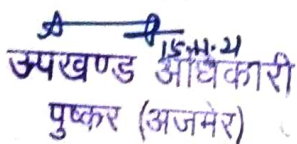 15-11-21
उपखण्ड अधिकारी
पुष्कर (अजमेर)